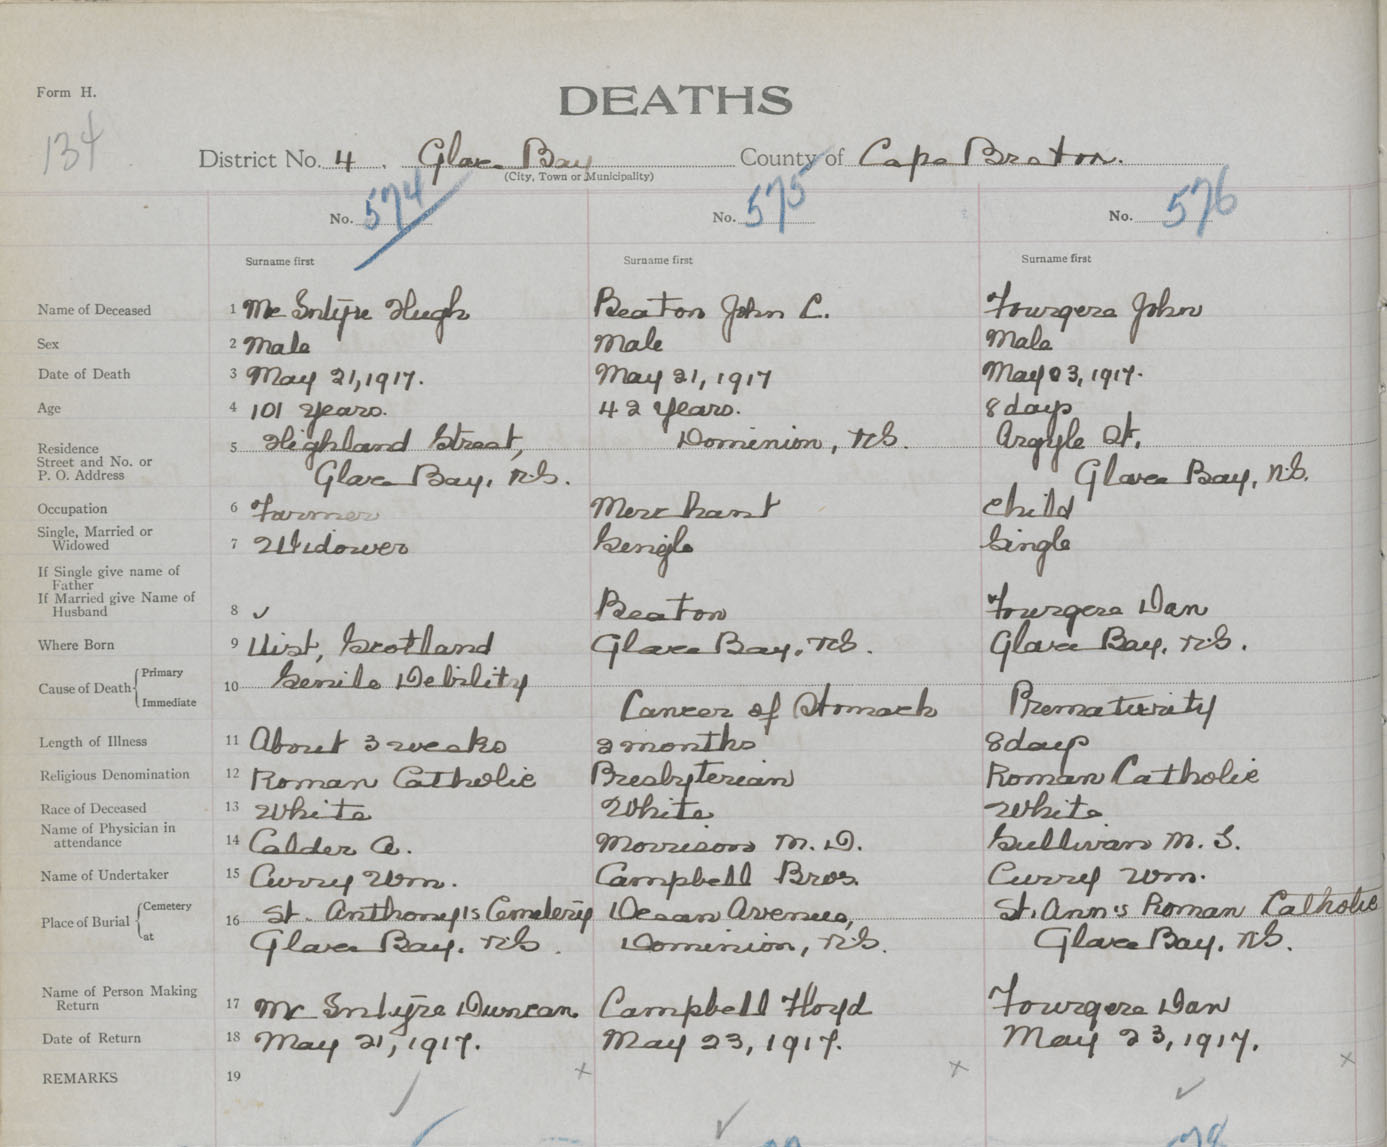 Form H.
DEATHS
134
District No. 4. Glace Bay County of Cape Breton.
(City, Town or Municipality)
No. 574 No. 575 No. 576
Surname first Surname first Surname first
Name of Deceased 1 Mc Intyre Hugh Beaton John C. Fourgere John
Sex 2 Male Male Male
Date of Death 3 May 21, 1917. May 21, 1917 May 23, 1917.
Age 4 101 years. 42 years. 8 days
Residence
Street and No. or
P. O. Address 5 Highland Street, Dominion, N.S. Argyle St.
Glace Bay, N.S. Glace Bay, N.S.
Occupation 6 Farmer Merchant Child
Single, Married or
Widowed 7 Widower Single Single
If Single give name of
Father
If Married give Name of
Husband 8 ✓ Beaton Fourgere Dan
Where Born 9 Uist, Scotland Glace Bay, N.S. Glace Bay, N.S.
Cause of Death Primary
Immediate 10 Senile Debility
Cancer of Stomach Prematurity
Length of Illness 11 About 3 weeks 2 months 8 days
Religious Denomination 12 Roman Catholic Presbyterian Roman Catholic
Race of Deceased 13 White White White
Name of Physician in
attendance 14 Calder A. Morrison M. D. Sullivan M. T.
Name of Undertaker 15 Curry Wm. Campbell Bros. Curry Wm.
Place of Burial Cemetery
at 16 St. Anthony's Cemetery Dean Avenue, St. Ann's Roman Catholic
Glace Bay, N.S. Dominion, N.S. Glace Bay, N.S.
Name of Person Making
Return 17 Mc Intyre Duncan Campbell Floyd Fourgere Dan
Date of Return 18 May 21, 1917. May 23, 1917. May 23, 1917.
REMARKS 19 x x x